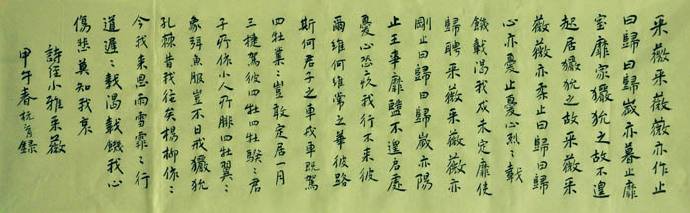 采薇采薇薇亦作止
曰歸曰歸歲亦暮止靡
室靡家玁狁之故不遑
起居玁狁之故采薇采
薇薇亦柔止曰歸曰歸
心亦憂止憂心烈:載
饑載渴我戍未定靡使
歸聘采薇采薇薇亦
剛止曰歸曰歸歲亦陽
止王事靡盬不遑启處
憂心孔疚我行不来彼
爾維何維常之華彼路
斯何君子之車戎車既駕
四牡業:豈敢定居一月
三捷駕彼四牡四牡騤:君
子所依小人所腓四牡翼:
象弭魚服豈不日戒玁狁
孔棘昔我往矣楊柳依:
今我来思雨雪霏:行
道遲:載渴載饑我心
傷悲莫知我哀
詩經小雅采薇
甲午春錄